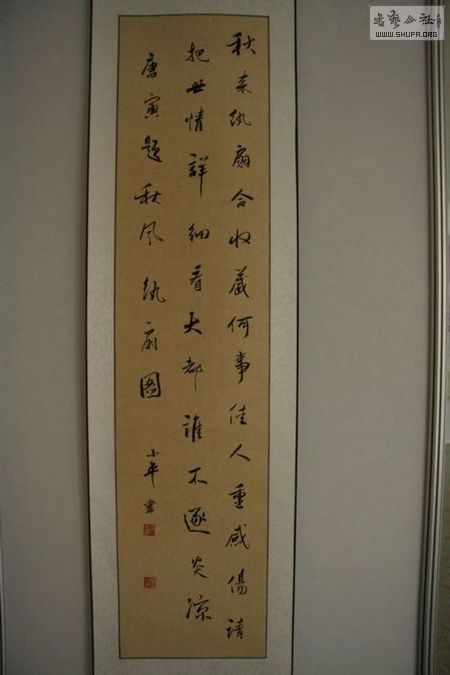 秋来纨扇合收藏何事佳人重感伤请
把世情詳細看大都誰不逐炎凉
唐寅题秋风纨扇图
小平書
书艺公社
WWW.SHUFA.ORG